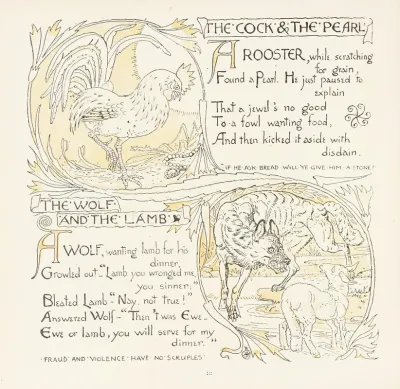 THE·COCK·&·THE·PEARL
A ROOSTER, while scratching
for grain,
Found a Pearl. He just paused to
explain
That a jewel's no good
To a fowl wanting food,
And then kicked it aside with
disdain.
"IF HE ASK BREAD WILL YE GIVE HIM A STONE?"
THE·WOLF·
AND·THE·LAMB·
A WOLF, wanting lamb for his
dinner,
Growled out—"Lamb you wronged me,
you sinner."
Bleated Lamb—"Nay, not true!"
Answered Wolf—"Then 'twas Ewe—
Ewe or lamb, you will serve for my
dinner."
·FRAUD·AND·VIOLENCE·HAVE·NO·SCRUPLES·